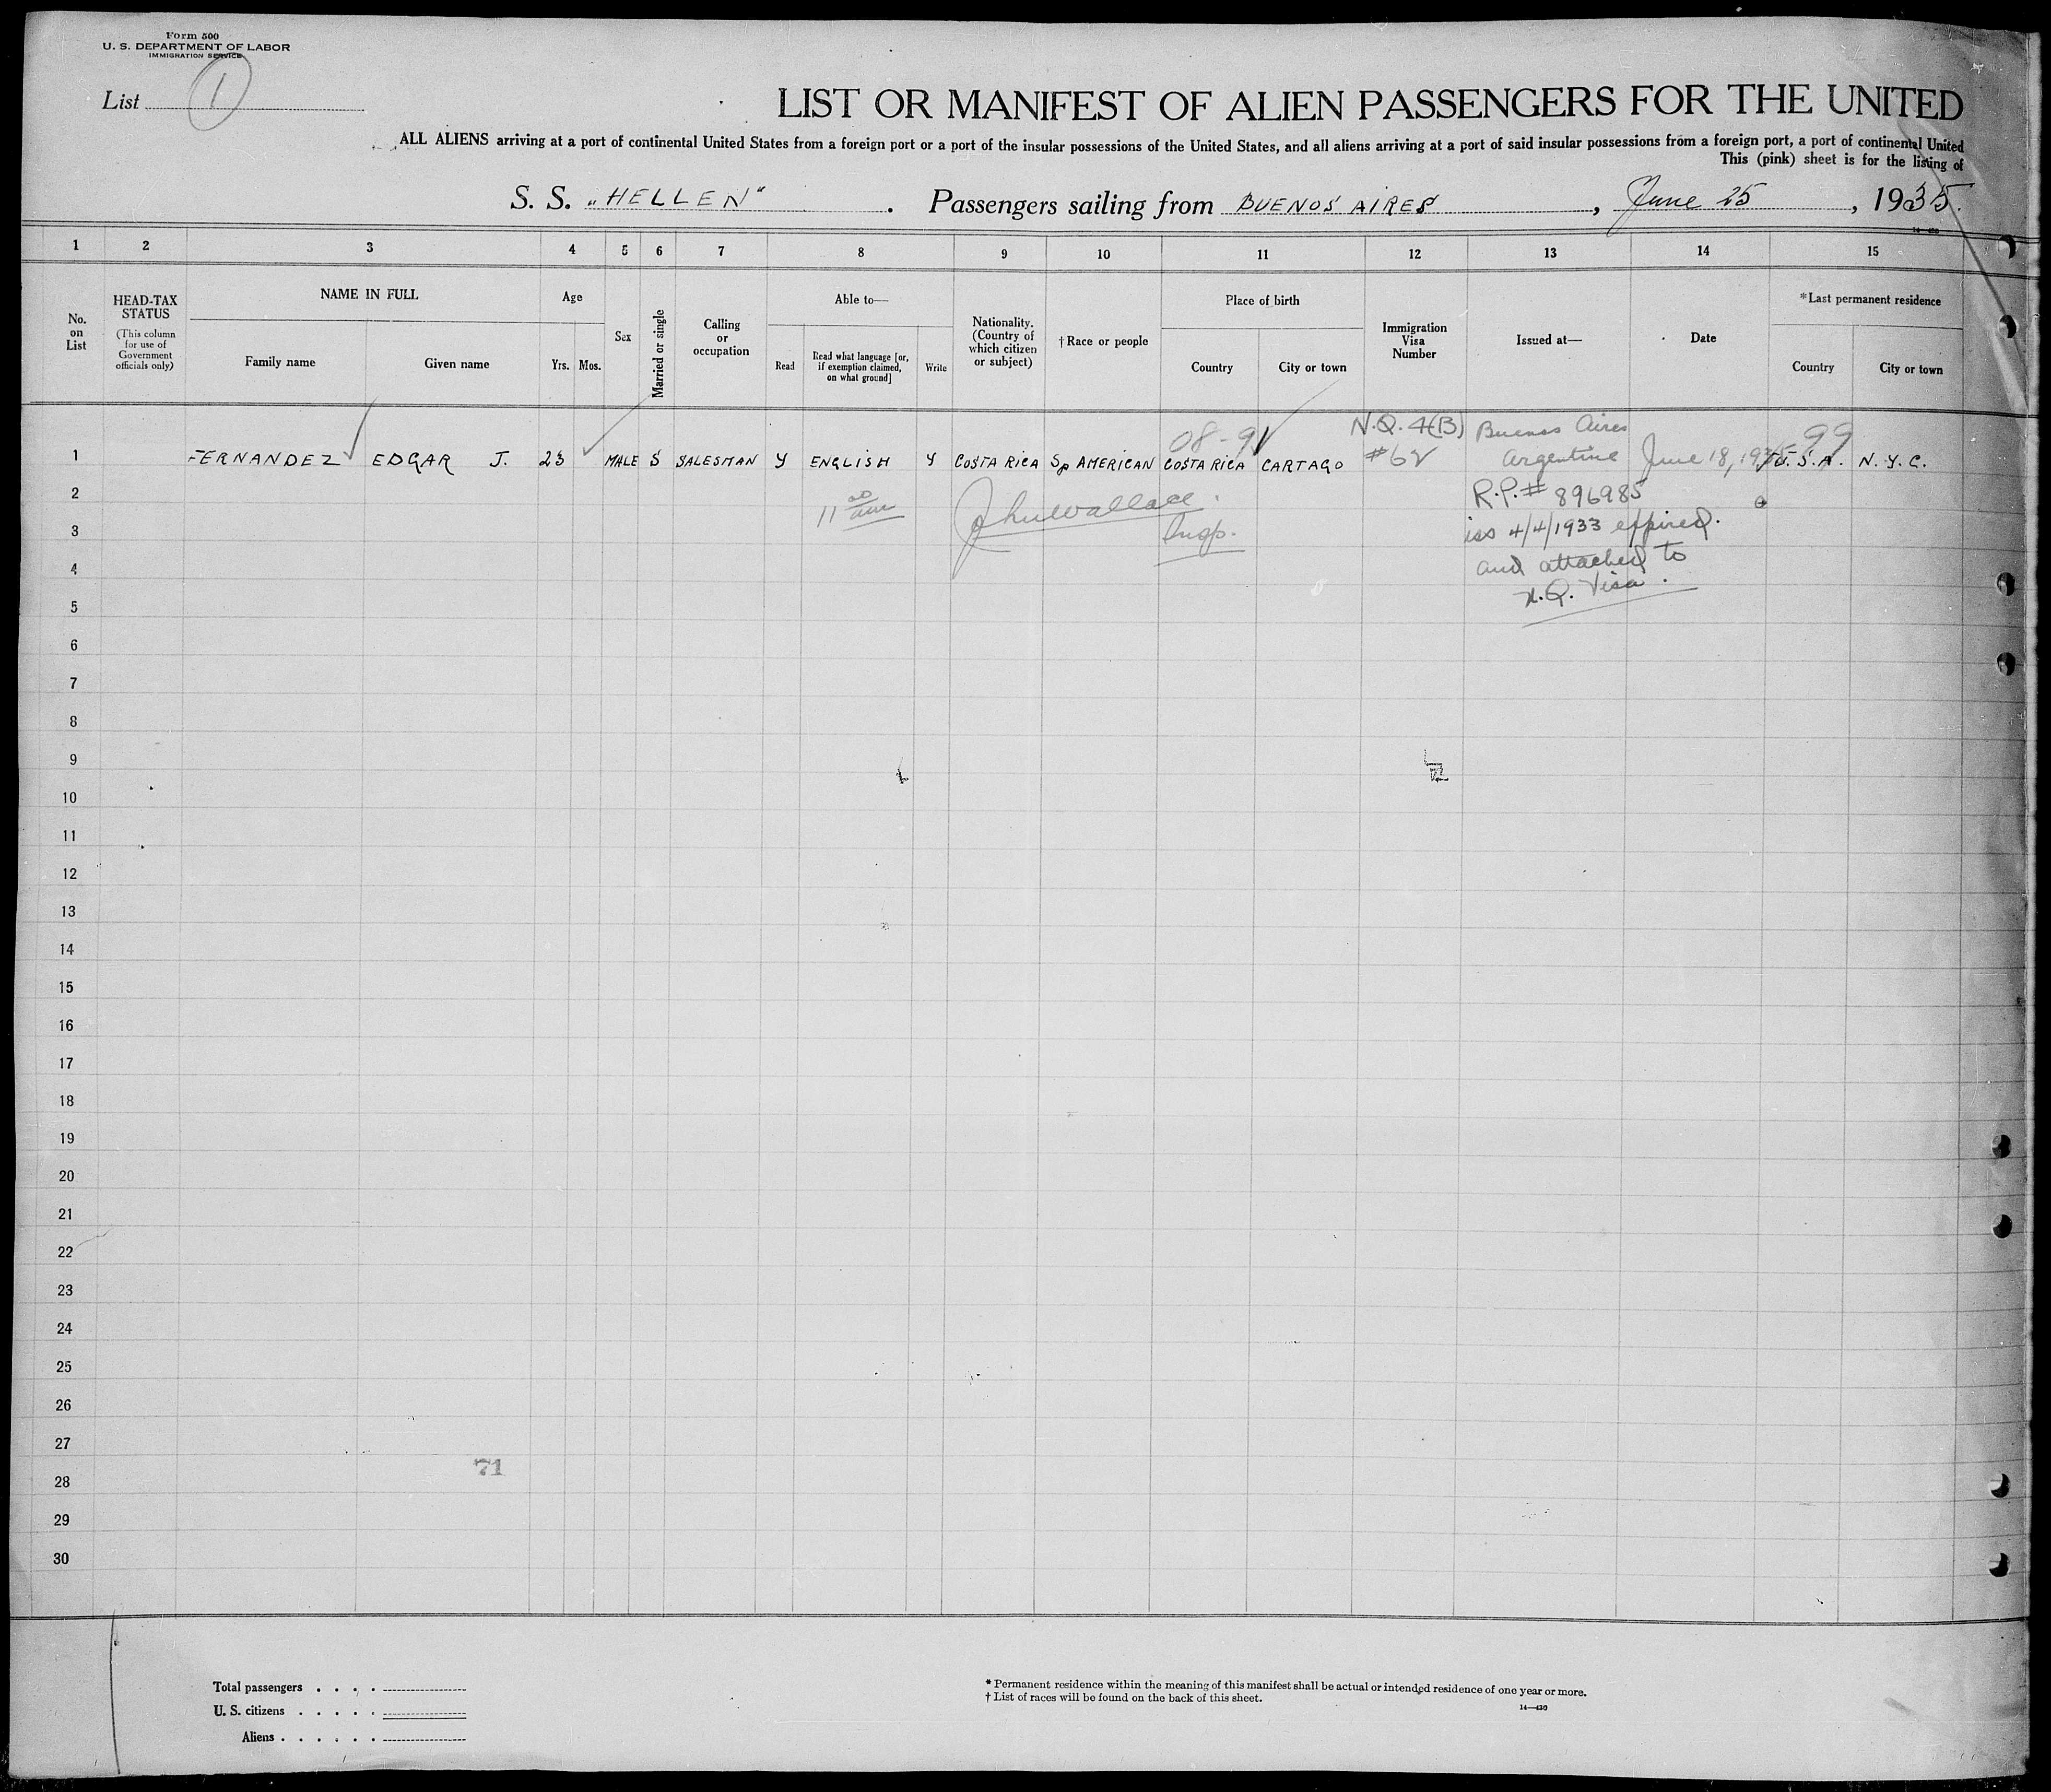 Form 500
U. S. DEPARTMENT OF LABOR
IMMIGRATION SERVICE
List 1
LIST OR MANIFEST OF ALIEN PASSENGERS FOR THE UNITED
ALL ALIENS arriving at a port of continental United States from a foreign port or a port of the insular possessions of the United States, and all aliens arriving at a port of said insular possessions from a foreign port, a port of continental United
This (pink) sheet is for the listing of
S. S. "HELLEN". Passengers sailing from BUENOS AIRES, June 25, 1935.
14—430
1 2 3 4 5 6 7 8 9 10 11 12 13 14 15
No. on List
HEAD-TAX STATUS
(This column for use of Government officials only)
NAME IN FULL
Family name
Given name
Age
Yrs. Mos.
Sex
Married or single
Calling or occupation
Able to—
Read
Read what language [or, if exemption claimed, on what ground]
Write
Nationality. (Country of which citizen or subject)
†Race or people
Place of birth
Country
City or town
Immigration Visa Number
Issued at—
Date
*Last permanent residence
Country
City or town
08-91
N.Q. 4(B)
Buenos Aires
99
1 FERNANDEZ EDGAR J. 23 MALE S SALESMAN Y ENGLISH Y COSTA RICA Sp AMERICAN COSTA RICA CARTAGO #62 Argentine June 18, U.S.A. N.Y.C.
2 R.P.# 896985
11 00 am John Wallace
3 Insp. iss 4/4/1933 expired.
4 and attached to
5 N.Q. Visa.
6
7
8
9
10
11
12
13
14
15
16
17
18
19
20
21
22
23
24
25
26
27
71
28
29
30
Total passengers . . . .
U. S. citizens . . . . .
Aliens . . . . . .
* Permanent residence within the meaning of this manifest shall be actual or intended residence of one year or more.
† List of races will be found on the back of this sheet.
14—430